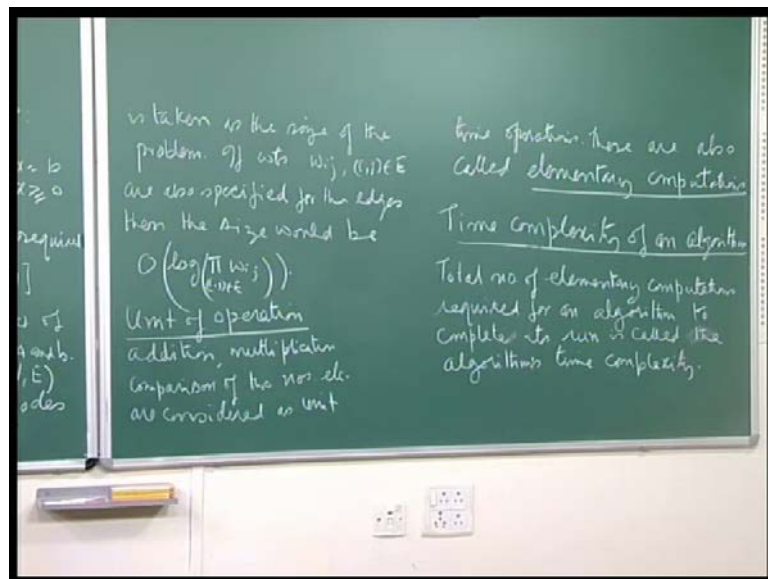 x = b
x ≥ 0
requires
]
s of
A and b.
, E)
nodes
is taken as the size of the
problem. If wts wij, (i,j)∈E
are also specified for the edges
then the size would be
O(log(∏ wij)).
(i,j)∈E
Unit of operation
addition, multiplication
comparison of two nos etc.
are considered as unit
time operations. These are also
called elementary computations
Time complexity of an algorithm
Total no of elementary computations
required for an algorithm to
complete its run is called the
algorithms time complexity.